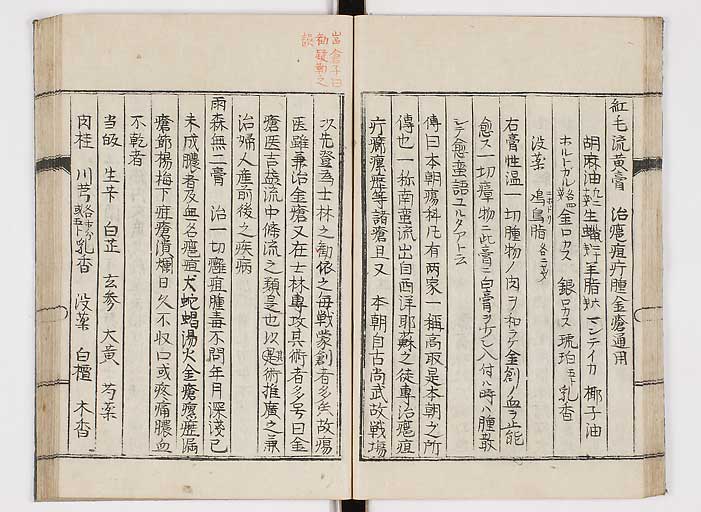 紅毛流黄膏　治瘡疽疔腫金瘡通用
胡麻油　生蠟　羊脂　マンテイカ　椰子油
ホルトガル　金ロカス　銀ロカス　琥珀　乳香
没薬　鳩鳥脂
右膏性温一切腫物ノ肉ヲ和ラケ金創ノ血ヲ止能
愈ス一切瘡物ニ此膏ニ白膏ヲ少シ入付ル時ハ腫散
シテ愈蛮語ユルクアトニ
傳曰本朝瘍科凡有両家一稱高取是本朝之所
傳也一称南蛮流出自西洋耶蘇之徒専治瘡疽
疔癤瘰癧等諸瘡且又　本朝自古尚武故戦場
以先登為士林之勧依之毎戦蒙創者多矣故瘍
医雖兼治金瘡又在士林専攻其術者多号曰金
瘡医吉益流中條流之類是也以其術推廣之兼
治婦人産前後之疾病
雨森無二膏　治一切癰疽腫毒不問年月深浅已
未成膿者及無名瘡疽犬蛇蝎湯火金瘡瘰癧漏
瘡癤楊梅下疳瘡潰爛日久不収口或疼痛膿血
不乾者
当皈　生芐　白芷　玄参　大黄　芍薬
肉桂　川芎　乳香　没薬　白檀　木香